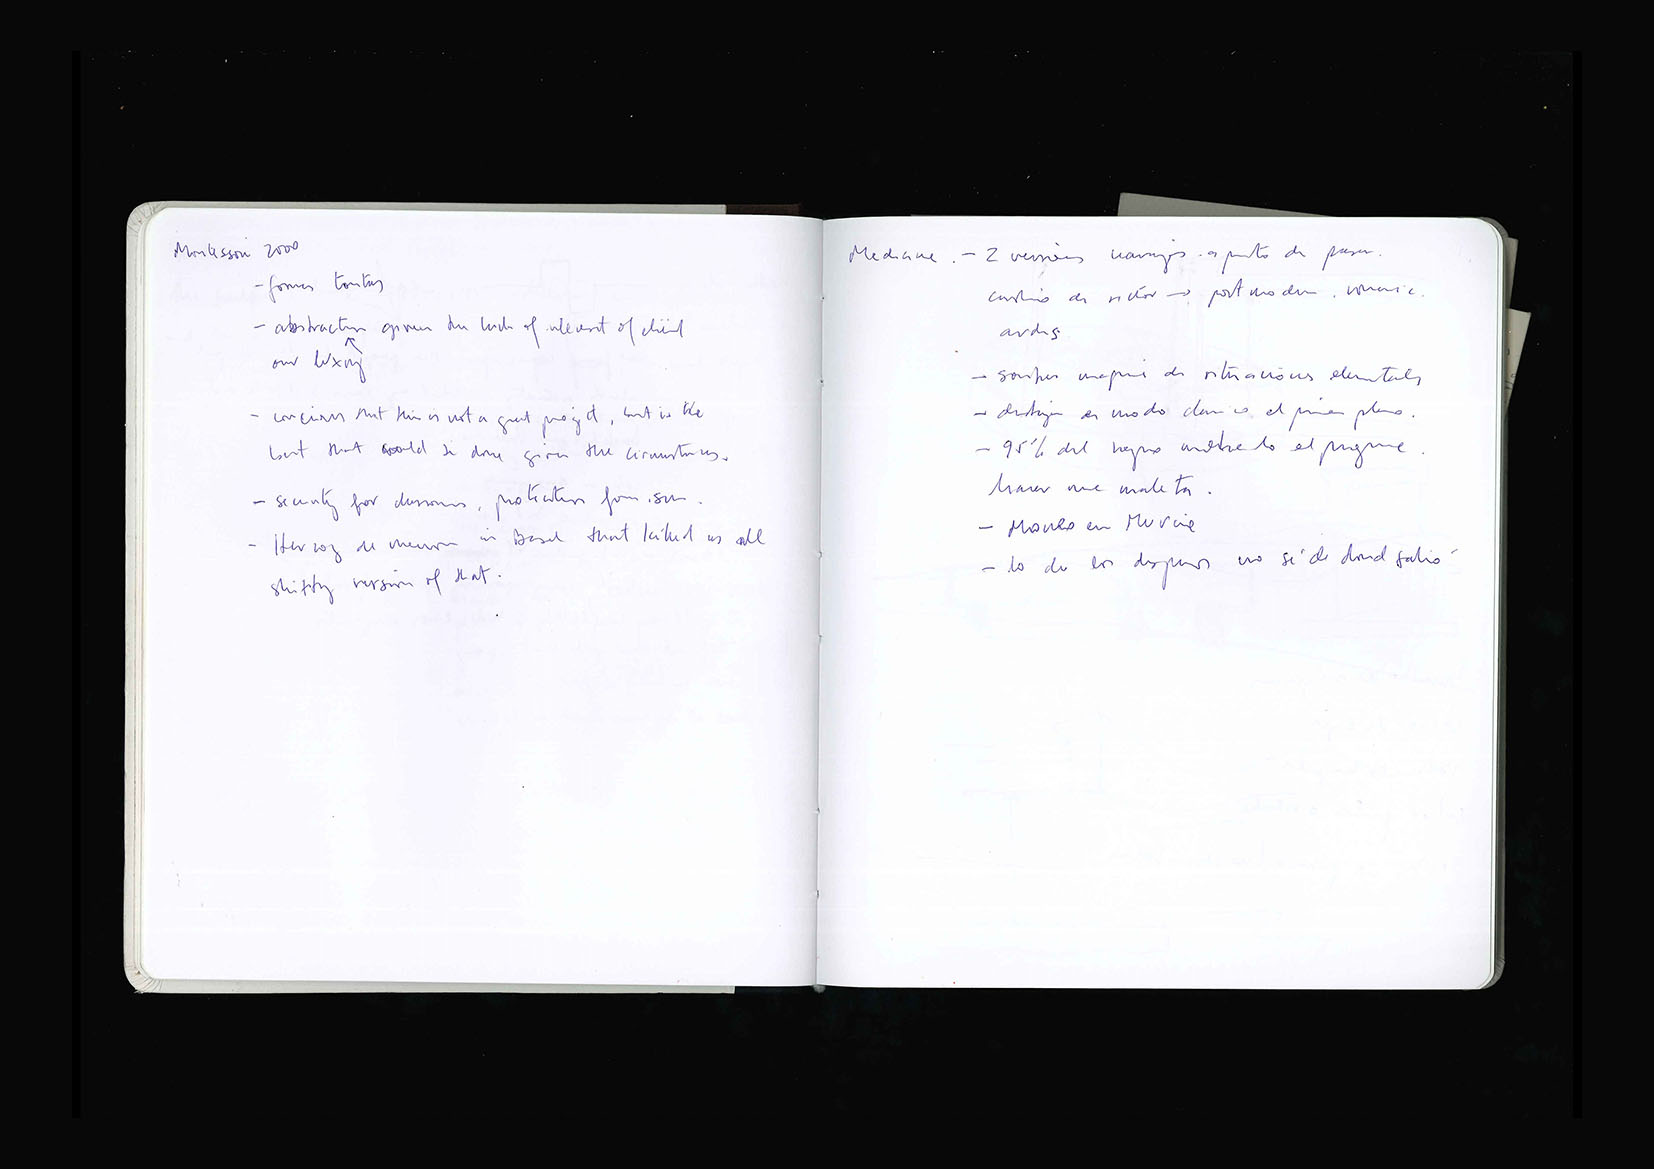 Montessori 2000
- formas tontas
- abstraction given the lack of interest of client
our luxury
- concious that this is not a great project, but is the
best that could be done given the circumstances.
- security for classrooms, protection from sun.
- Herzog de meuron in Basel that killed us all
shitty version of that.
Medicine. - 2 versions . a punto de pasar.
cambio de rector → post modern.
- de situaciones elementales
- de modo el primer plano.
- 95% del el programa.
hacer una maleta.
- Moneo en Murcia
- lo de los no sé de donde salió